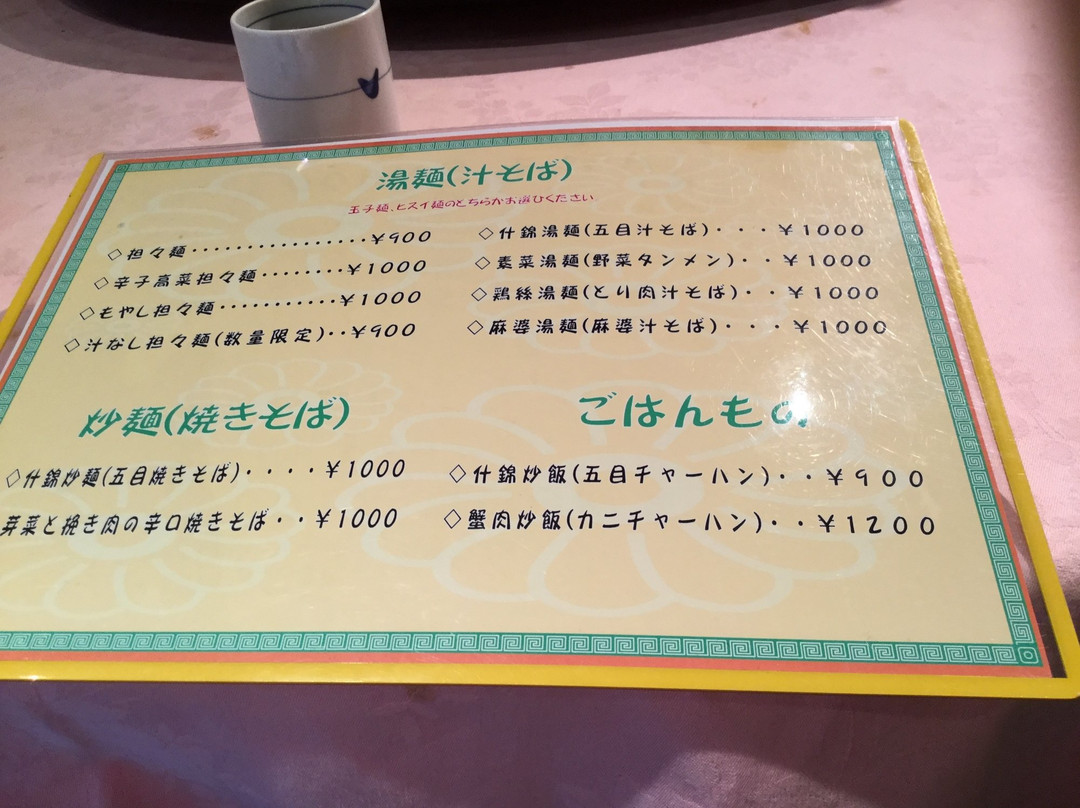 湯麺(汁そば)
玉子麺、ヒスイ麺のどちらかお選びください
◇担々麺・・・・・・・・・・・・・・・・・¥900
◇辛子高菜担々麺・・・・・・・・¥1000
◇もやし担々麺・・・・・・・・・・・¥1000
◇汁なし担々麺(数量限定)・・¥900
◇什錦湯麺(五目汁そば)・・・¥1000
◇素菜湯麺(野菜タンメン)・・¥1000
◇鶏絲湯麺(とり肉汁そば)・・¥1000
◇麻婆湯麺(麻婆汁そば)・・・¥1000
炒麺(焼きそば)
◇什錦炒麺(五目焼きそば)・・・・¥1000
芽菜と挽き肉の辛口焼きそば・・¥1000
ごはんもの
◇什錦炒飯(五目チャーハン)・・¥900
◇蟹肉炒飯(カニチャーハン)・・¥1200